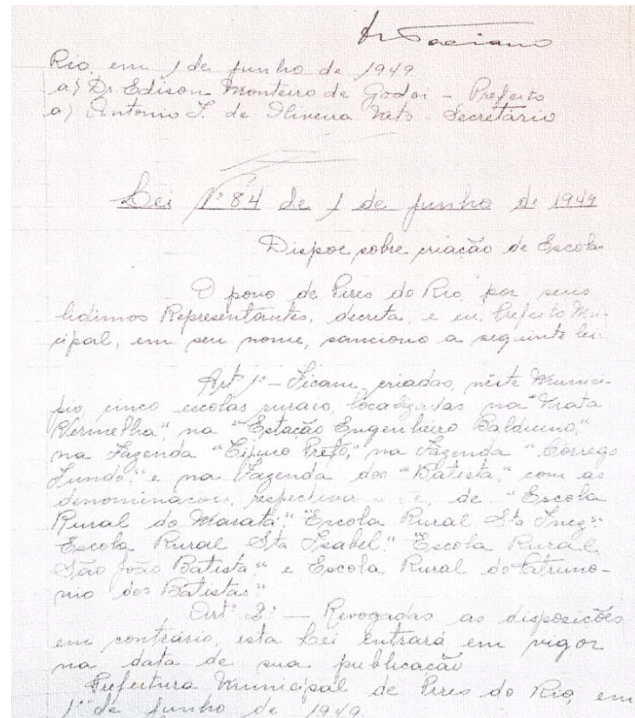 Rio, em 1 de junho de 1949
a) Dr Edison Monteiro de Godoi - Prefeito
a) Antonio J. de Oliveira Neto - Secretário
Lei Nº 84 de 1 de junho de 1949
Dispoe sobre criacão de Escola
O povo de Pires do Rio, por seus
lidimos Representantes, decreta, e eu, Prefeito Mu-
cipal, em seu nome, sanciono a seguinte lei:
Artº 1º - Ficam criadas, neste Munici-
pio, cinco escolas rurais, localizadas na "Mata
Vermelha", na "Estacão Engenheiro Balduino,"
na Fazenda "Cipuro Preto," na Fazenda "Corrego
Fundo," e na Fazenda dos "Batista," com as
denominacoes, de "Escola
Rural do Maratá," "Escola Rural Sta Inez"
Escola Rural Sta Isabel." "Escola Rural
São João Batista" e Escola Rural do Patrimo-
nio dos Batistas"
Artº 2º - Revogadas as disposicões
em contrário, esta Lei entrará em vigor
na data de sua publicacão
Prefeitura Municipal de Pires do Rio, em
1º de junho de 1949.